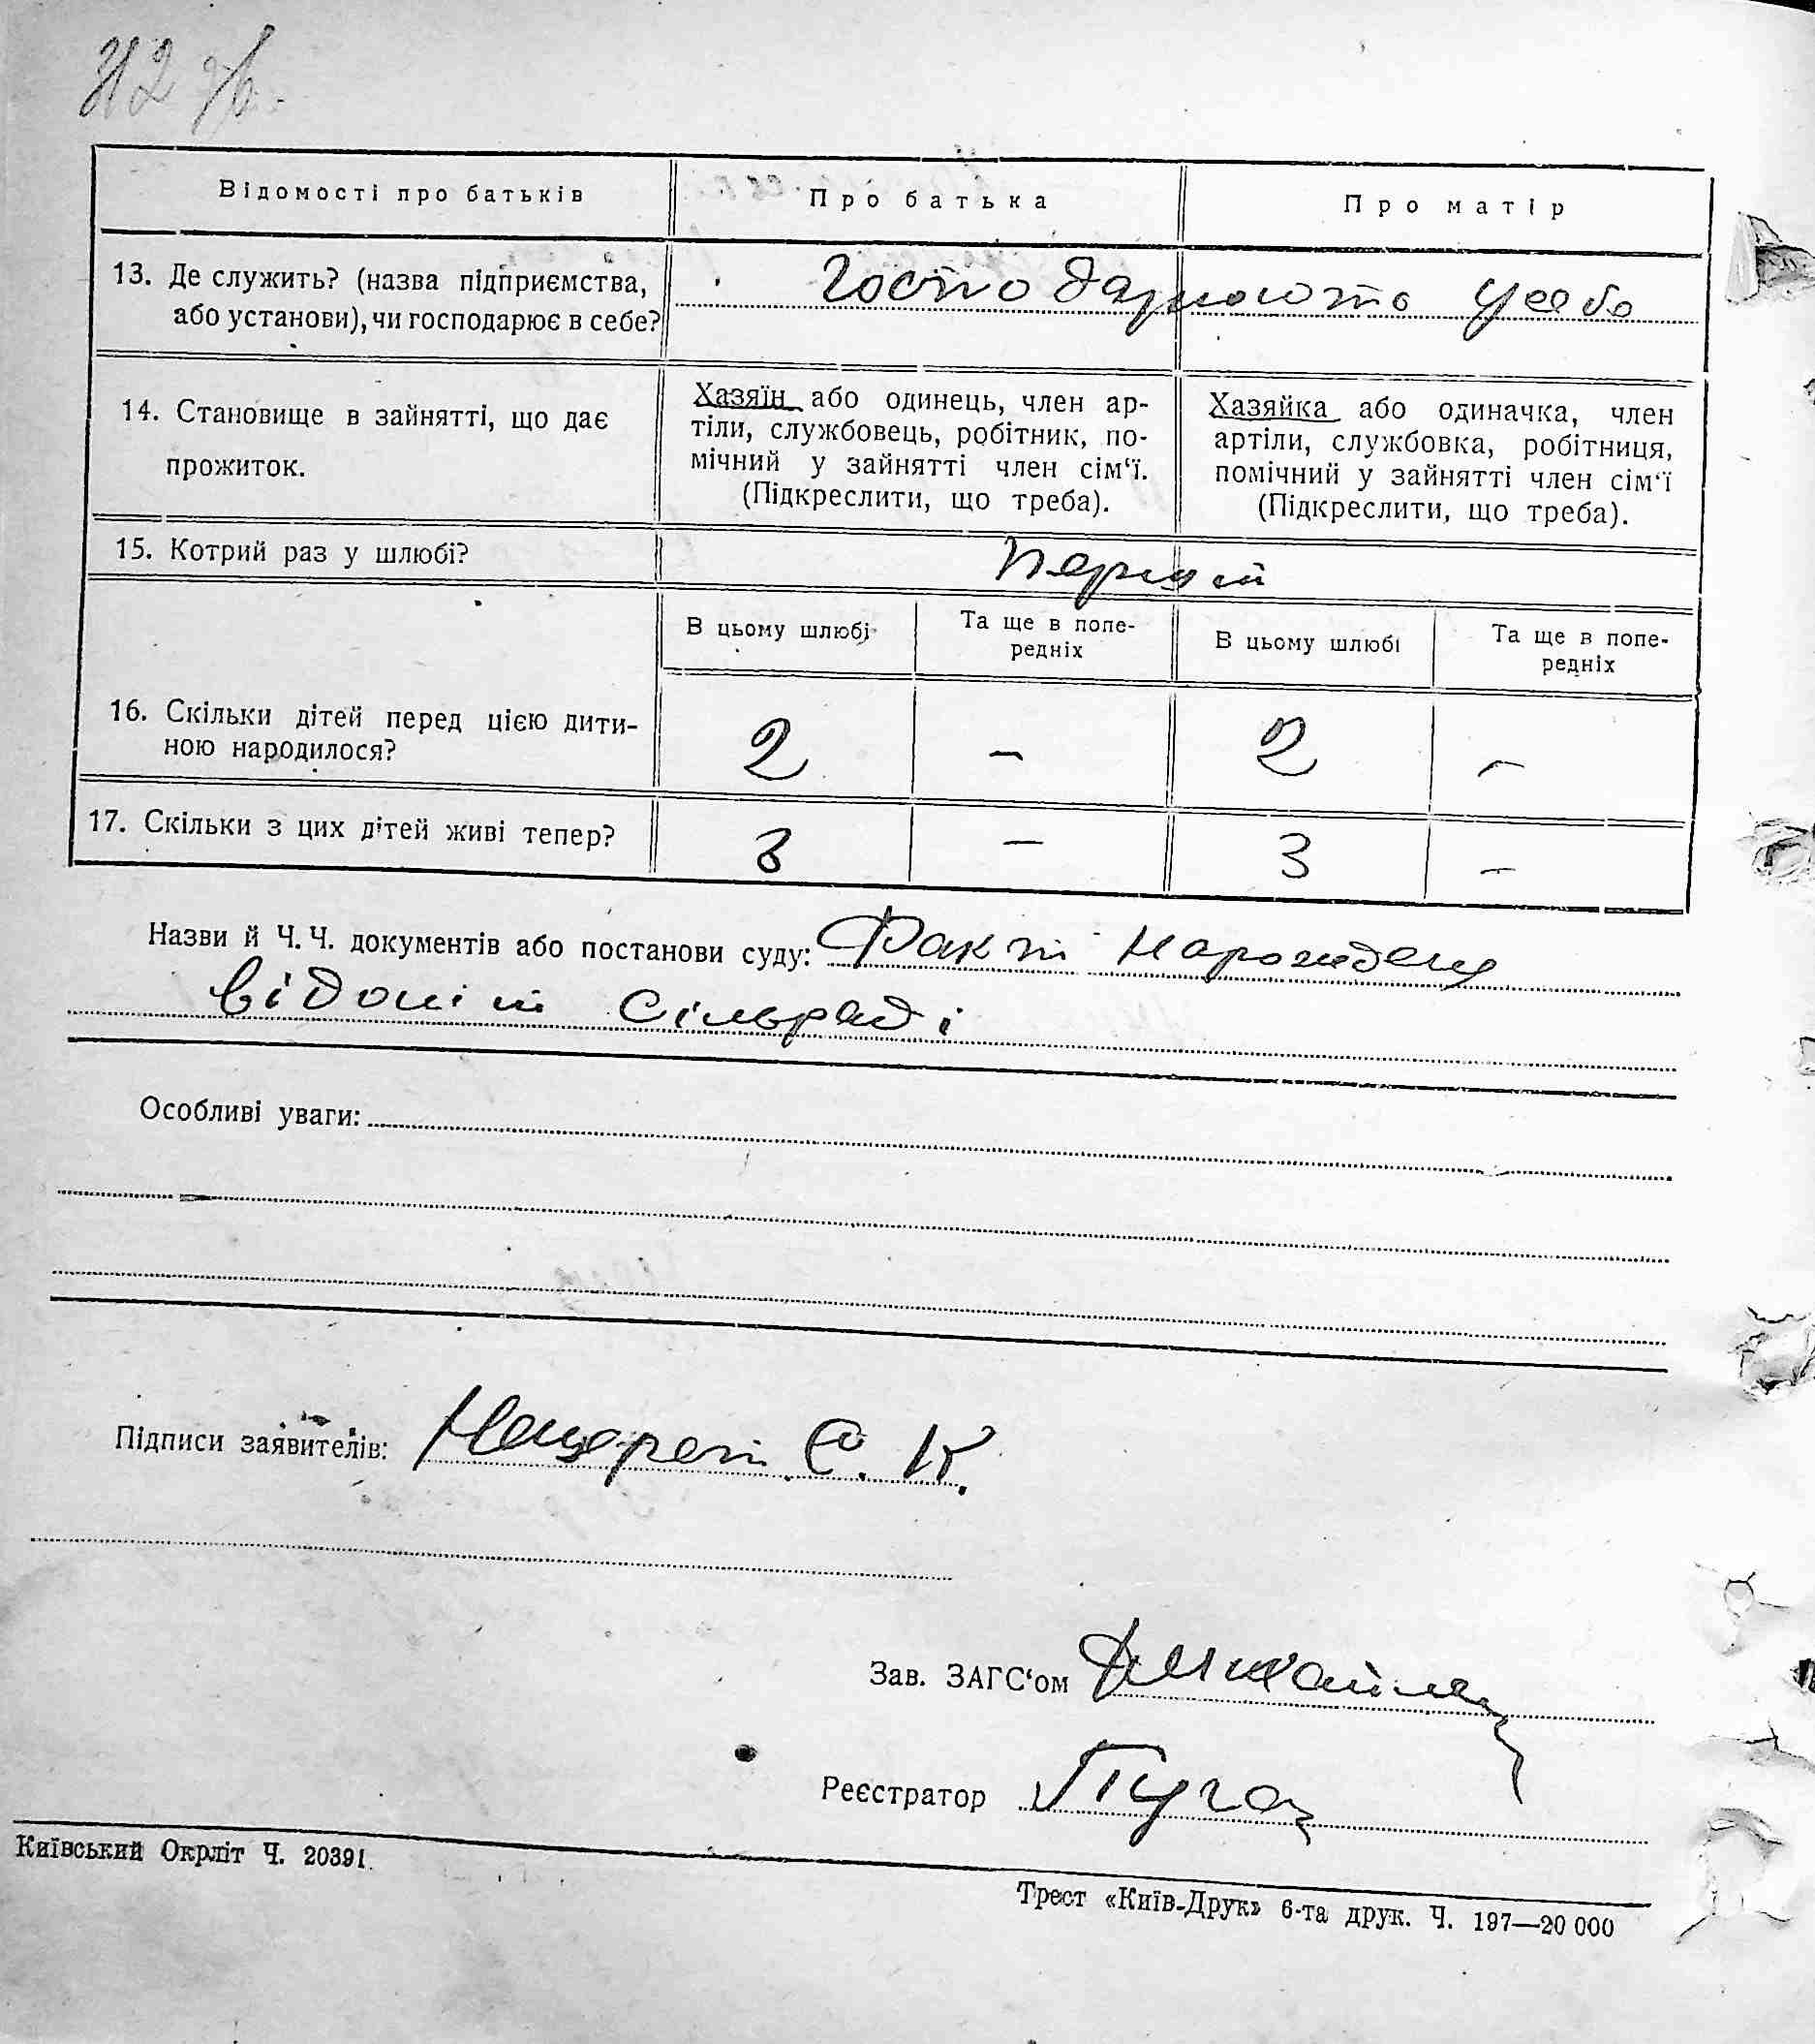 312 зв.
Відомості про батьків
Про батька
Про матір
13. Де служить? (назва підприємства,
або установи), чи господарює в себе?
Господарюють у себе
14. Становище в зайнятті, що дає
прожиток.
Хазяїн або одинець, член ар-
тіли, службовець, робітник, по-
мічний у зайнятті член сім‘ї.
(Підкреслити, що треба).
Хазяйка або одиначка, член
артіли, службовка, робітниця,
помічний у зайнятті член сім‘ї
(Підкреслити, що треба).
15. Котрий раз у шлюбі?
Перший
В цьому шлюбі
Та ще в попе-
редніх
В цьому шлюбі
Та ще в попе-
редніх
16. Скільки дітей перед цією дити-
ною народилося?
2 — 2 —
17. Скільки з цих дітей живі тепер?
3 — 3 —
Назви й Ч. Ч. документів або постанови суду: Факт нарождення
відомий сільраді
Особливі уваги:
Підписи заявителів: Нещерет С. К.
Зав. ЗАГС‘ом
Реєстратор
Київський Окрліт Ч. 20391.
Трест «Київ-Друк» 6-та друк. Ч. 197—20 000